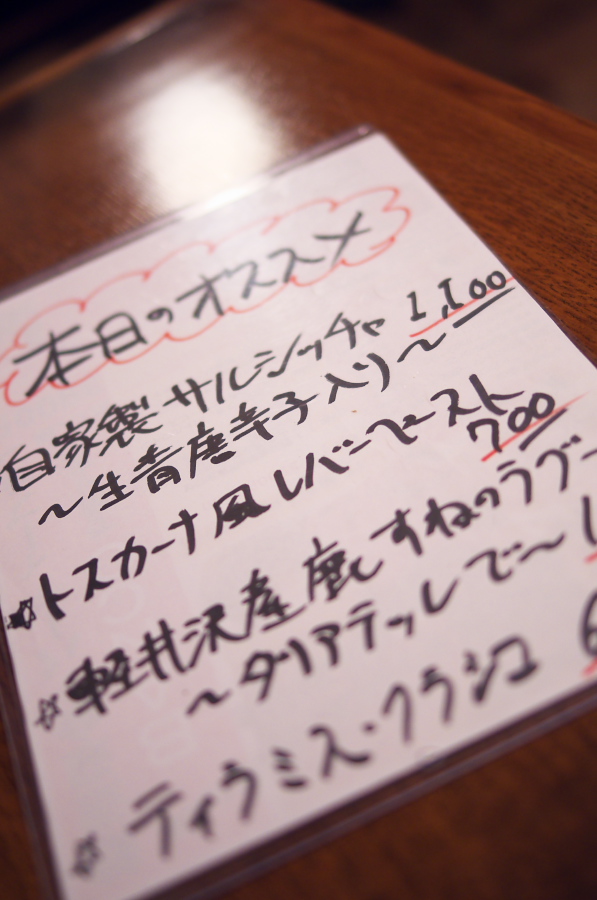 本日のオススメ
自家製サルシッチャ 1,100
～生青唐辛子入り～
☆トスカーナ風レバーペースト
700
☆軽井沢産鹿すねのラグー
～タリアテッレで～
☆ティラミス・クラシコ